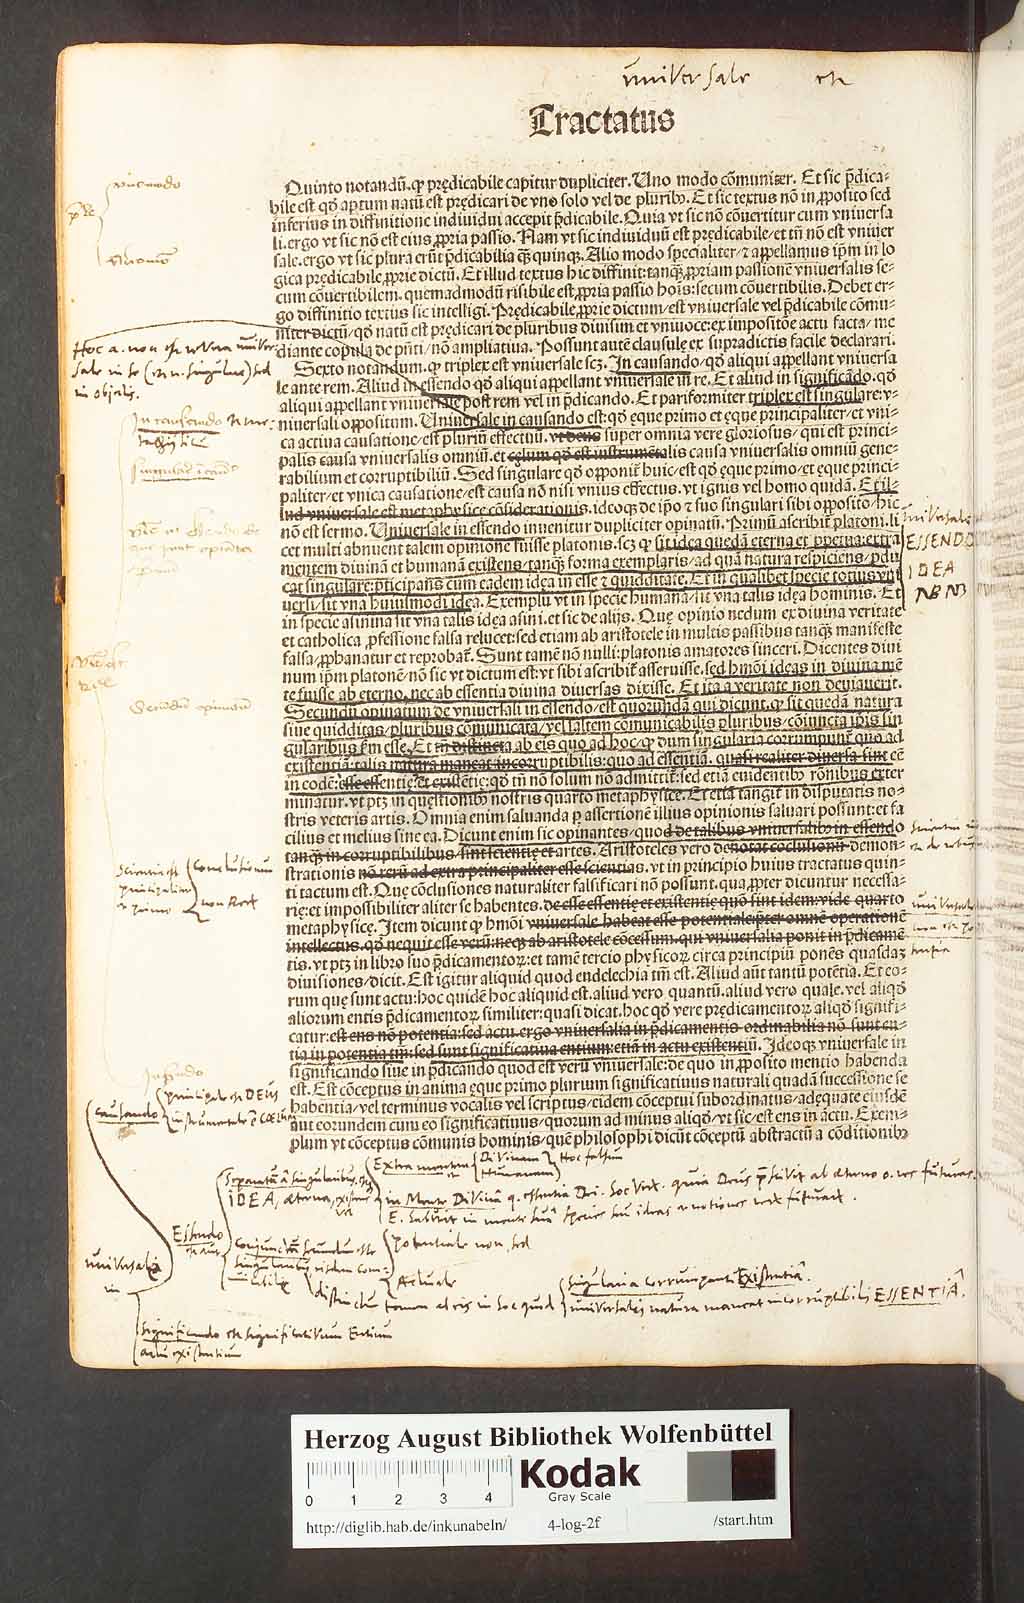 universale est
Tractatus
Quinto notandū. ꝙ prędicabile capitur dupliciter. Uno modo cōmuniter. Et sic p̄dica-
bile est qď aptum natū est prędicari de vno solo vel de pluribꝰ. Et sic textus nō in ꝓposito sed
inferius in diffinitione indiuidui accepit p̄dicabile. Quia vt sic nō cōuertitur cum vniuersa
li. ergo vt sic nō est eius ꝓpria passio. Nam vt sic indiuiduū est prędicabile/ et tn̄ nō est vniuer
sale. ergo vt sic plura erūt p̄dicabilia q̄ꝫ quinqꝫ. Alio modo specialiter/ ⁊ appellamus ip̄m in lo
gica prędicabile ꝓprie dictū. Et illud textus hic diffinit: tanqꝫ ꝓpriam passionē vniuersalis se-
cum cōuertibilem. quemadmodū risibile est ꝓpria passio hoīs: secum cōuertibilis. Debet er-
go diffinitio textus sic intelligi. Prędicabile ꝓprie dictum/ est vniuersale vel p̄dicabile cōmu-
niter dictū/ qď natū est prędicari de pluribus diuisim et vniuoce: ex impositōe actu facta/ me
diante copula de pn̄ti/ nō ampliatiua. Possunt autē clausule ex supradictis facile declarari.
Sexto notandum. ꝙ triplex est vniuersale scꝫ. In causando/ qď aliqui appellant vniuersa
le ante rem. Aliud in essendo qď aliqui appellant vniuersale in re. Et aliud in significādo. qď
aliqui appellant vniuersale post rem vel in p̄dicando. Et pariformiter triplex est singulare: v-
niuersali oppositum. Uniuersale in causando est: qď ęque primo et ęque principaliter/ et vni-
ca actiua causatione/ est pluriū effectiuū. vt deus super omnia vere gloriosus/ qui est princi-
palis causa vniuersalis omniū. et cęlum qď est instrumētalis causa vniuersalis omniū gene-
rabilium et corruptibiliū. Sed singulare qď opponit̄ huic/ est qď ęque primo/ et ęque princi-
paliter/ et vnica causatione/ est causa nō nisi vnius effectus. vt ignis vel homo quidā. Et il-
lud vniuersale est metaphysice cōsiderationis. ideoqꝫ de ip̄o ⁊ suo singulari sibi opposito/ hic
nō est sermo. Uniuersale in essendo inuenitur dupliciter opinatū. Primū ascribit̄ platoni. li
cet multi abnuent talem opinionē fuisse platonis. scꝫ ꝙ sit idea quędā eterna et ꝑpetua: extra
mentem diuinā et humanā existens/ tanqꝫ forma exemplaris/ ad quā natura respiciens/ ꝓdu
cat singulare: ꝑticipans cum eadem idea in esse ⁊ quidditate. Et in qualibet specie totius vni
uersi/ sit vna huiusmodi idea. Exemplū vt in specie humana/ sit vna talis idea hominis. Et
in specie asinina sit vna talis idea asini. et sic de alijs. Que opinio nedum ex diuina veritate
et catholica ꝓfessione falsa relucet: sed etiam ab aristotele in multis passibus tanqꝫ manifeste
falsa/ ꝓphanatur et reprobat̄. Sunt tamē nō nulli: platonis amatores sinceri. Dicentes diui
num ip̄m platonē nō sic vt dictum est: vt sibi ascribit̄ asseruisse. sed hmōi ideas in diuina mē
te fuisse ab eterno. nec ab essentia diuina diuersas dixisse. Et ita a veritate non deuiauerit.
Secundū opinatum de vniuersali in essendo/ est quorundā qui dicunt. ꝙ sit quędā natura
siue quidditas/ pluribus cōmunicata/ vel saltem cōmunicabilis pluribus/ cōiuncta ip̄is sin
gularibus s̄m esse. Et tn̄ distincta ab eis quo ad hoc/ ꝙ dum singularia corrumpunt̄ quo ad
existentiā: talis natura maneat incorruptibilis: quo ad essentiā. quasi realiter diuersa sint eē
in eodē: esse essentię: et existētię: qď tn̄ nō solum nō admittit̄. sed etiā euidentibꝰ rōnibus exter
minatur. vt ptꝫ in quęstionibꝰ nostris quarto metaphysice. Et etiā tangit̄ in disputatis no-
stris veteris artis. Omnia enim saluanda ꝑ assertionē illius opinionis saluari possunt: et fa
cilius et melius sine ea. Dicunt enim sic opinantes/ quod de talibus vniuersalibꝰ in essendo
tanqꝫ in corruptibilibus/ sint scientię et artes. Aristoteles vero denotat cōclusionū demon-
strationis nō rerū ad extra principaliter esse scientias. vt in principio huius tractatus quin-
ti tactum est. Que cōclusiones naturaliter falsificari nō possunt. qua ꝓpter dicuntur necessa-
rię: et impossibiliter aliter se habentes. de esse essentię et existentię quō sint idem: vide quarto
metaphysicę. Item dicunt ꝙ hmōi vniuersale habeat esse potentiale: pter omnē operationē
intellectus. qď nequit esse verū: neqꝫ ab aristotele cōcessum. qui vniuersalia ponit in p̄dicamē
tis. vt ptꝫ in libro suo p̄dicamentoꝝ: et tamē tercio physicoꝝ circa principiū ponēs quasdaꝫ
diuisiones/ dicit. Est igitur aliquid quod endelechia tm̄ est. Aliud aūt tantū potētia. Et eo-
rum quę sunt actu: hoc quidē hoc aliquid est. aliud vero quantū. aliud vero quale. vel aliqď
aliorum entis p̄dicamentoꝝ similiter: quasi dicat. hoc qď vere prędicamentoꝝ aliqď signifi-
catur: est ens nō potentia: sed actu. ergo vniuersalia in p̄dicamentis ordinabilia nō sunt en-
tia in potentia tm̄: sed sunt significatiua entium: etiā in actu existentiū. Ideoqꝫ vniuersale in
significando siue in p̄dicando quod est verū vniuersale: de quo in ꝓposito mentio habenda
est. Est cōceptus in anima ęque primo plurium significatiuus naturali quadā successione se
habentia/ vel terminus vocalis vel scriptus/ eidem cōceptui subordinatus/ adequate eiusdē
aut eorundem cum eo significatiuus/ quorum ad minus aliqď/ vt sic/ est ens in actu. Exem-
plum vt cōceptus cōmunis hominis/ quē philosophi dicūt cōceptū abstractū a cōditionibꝰ
Hoc a. non est vera univer
sale in se sed
in objectis.
In causando
universale
ESSENDO
IDEA
NB NB
Secundū opinatū
Scientia est
principaliter
et primo
conclusionum
non rerum
causando
principale est DEUS
instrumentale COELUM
Essendo
IDEA, aeterna,
Extra mentem
Divinam
Humanam
Hoc falsum
potentiale non, sed
Actuale
distinctum tamen ab eis in hoc quod
singularia corrumpantur Existentiā.
universalis natura maneat incorruptibili ESSENTIÂ.
universalia
in
significando est significativum Entium
actu existentium
Herzog August Bibliothek Wolfenbüttel
0 1 2 3 4
Kodak
Gray Scale
http://diglib.hab.de/inkunabeln/ 4-log-2f /start.htm